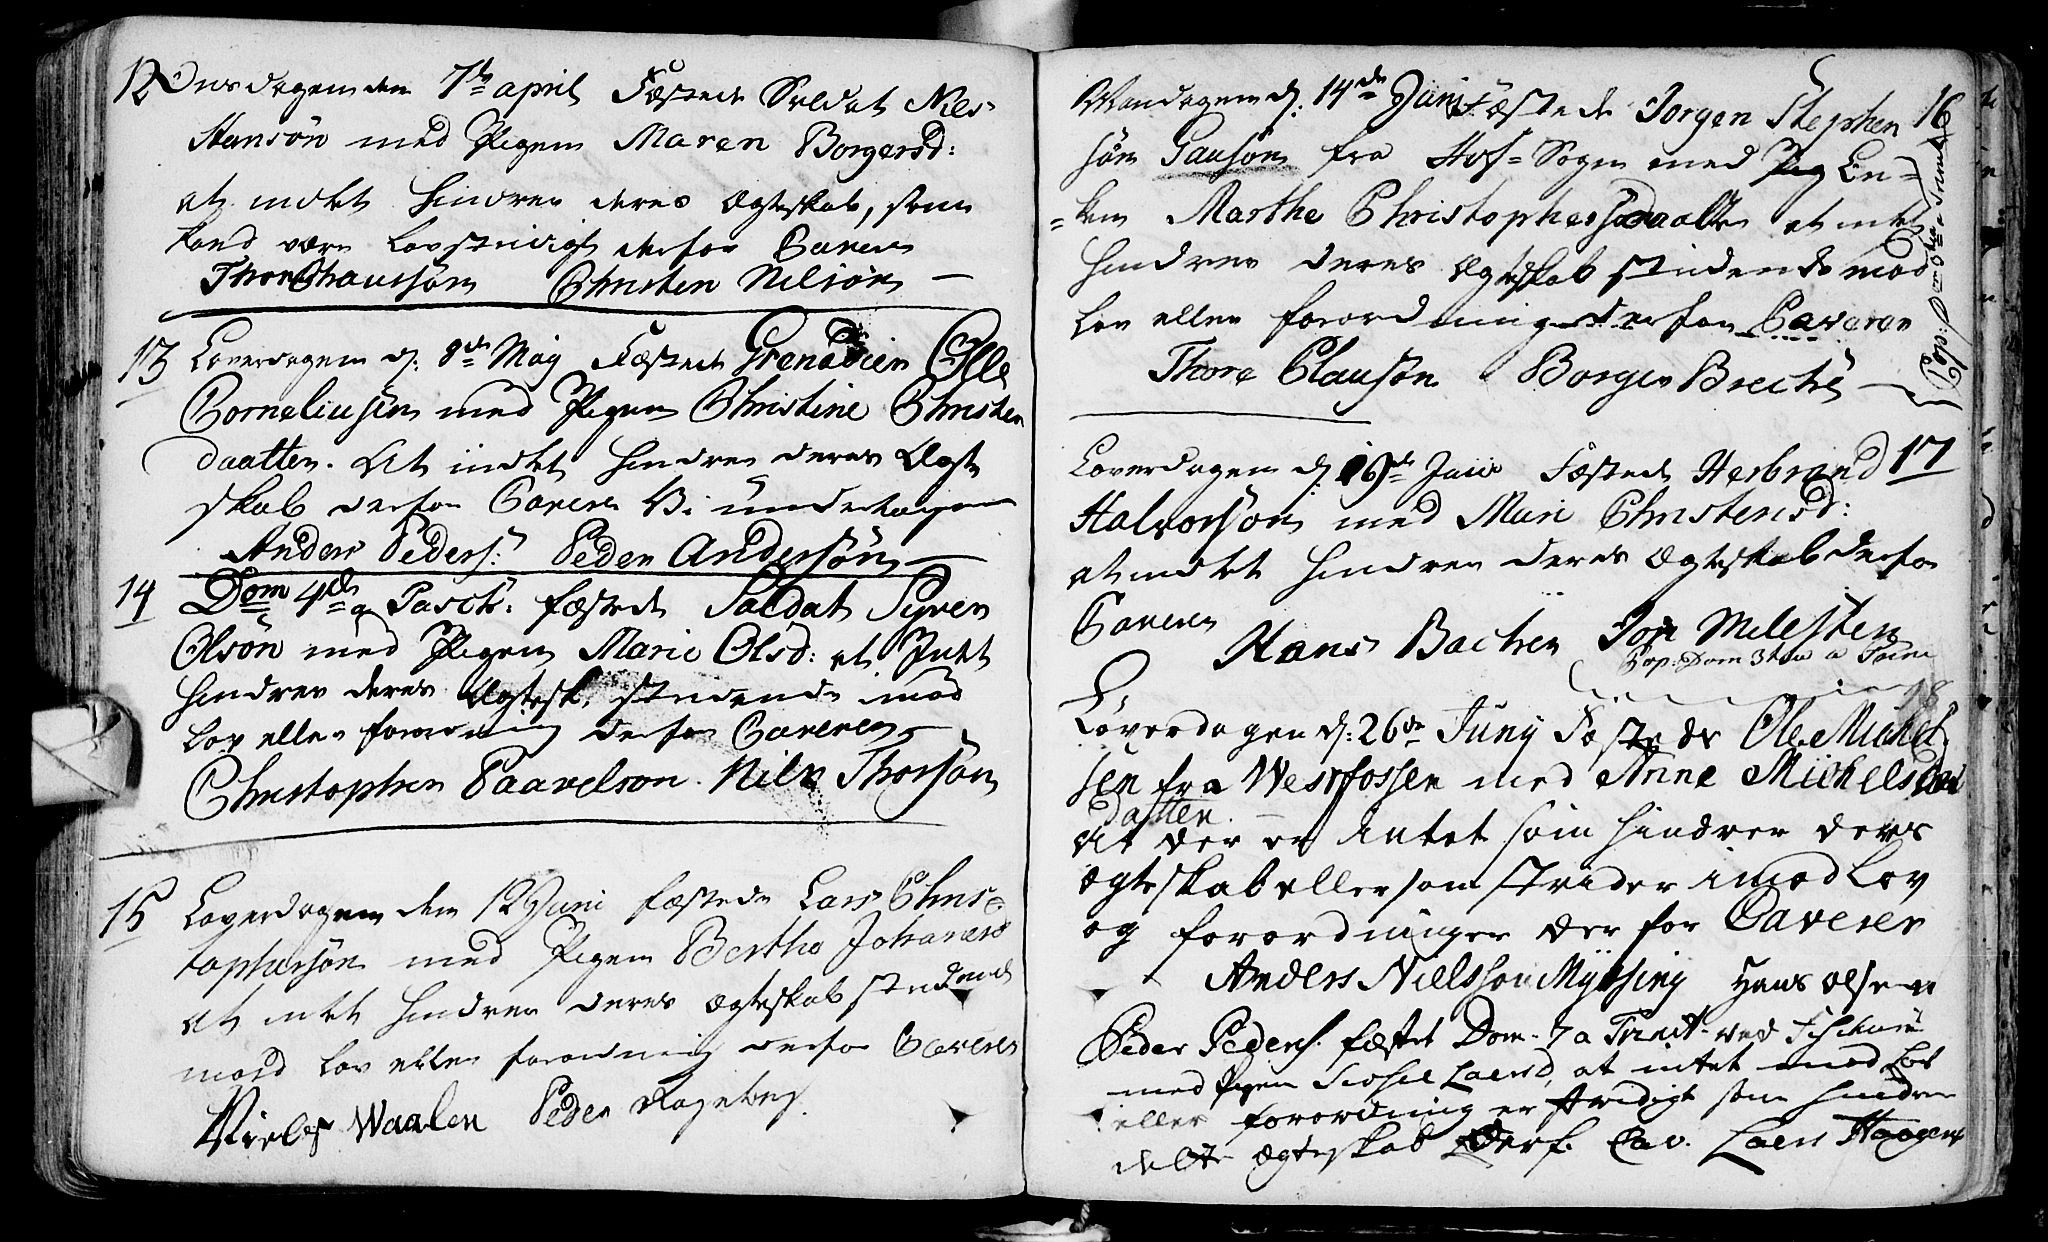 12 Onsdagen den 7de april Fæstede Soldat Nils
Hansøn med Pigen Maren Borgersd:
at indtet hindrer deres Ægteskab, som
kand være lovstridigt derfor Caverer
Thore Chaussøn Christen Nilsøn
13 Loverdagen d: 8de May Fæstede Grenadeer Olle
Corneliusøn med Pigen Christine Christen
daatter. At indtet hindrer deres Ægte
skab derfor Caverer Vi undertegnede
Anders Peders: Peder Andersøn
14 Dom 4de a Pasch: fæstede Soldat Syver
Olsøn med Pigen Marie Olsd: at Intet
hindrer deres Ægtesk. stridende imod
Lov eller forordning derfor Caverer
Christopher Paavelson. Nils Thorsøn
15 Loverdagen den 12 Juni fæstede Lars Chris-
tophersøn med Pigen Berthe Johanesd
at intet hindrer deres Ægteskab stridende
mood Lov eller forordning derfor Caverer
Niels Waalen Peder
Mandagen d: 14de Juni Fæstede Jorgen Stephen 16
søn Gausøn fra Hof-Sogen med Pig En-
-ken Marthe Christophersdaatter at intet
hindrer deres Ægteskab stridende mod
Lov eller forordning derfor Caverer
Thore Clausøn Borger Brechè
Cop: Dom 5ta a Trinit
Loverdagen d: 19de Juni Fæstede Herbrand 17
Halvorsøn med Mari Christensd:
at indtet hindrer deres Ægteskab derfor
Caverer
Hans Bacher Jon Milesten
Cop: Dom 3tia a Trini
18
Løverdagen d: 26de Juny Fæstede Ole Michel
sen fra Westfossen med Anne Michelsdaa
datter
At der er intet som hindrer deres
ægteskab eller som strider imod Lov
og forordninger der for Caverer
Anders Nielsson Hans Olsen
Peder Peders. fæstet Dom. 7 a Trinit. ved
med Pigen Laersd, at intet mod Lov
eller forordning er stridigt som hindrer
dette ægteskab Derf. Cav. Laers Haagens